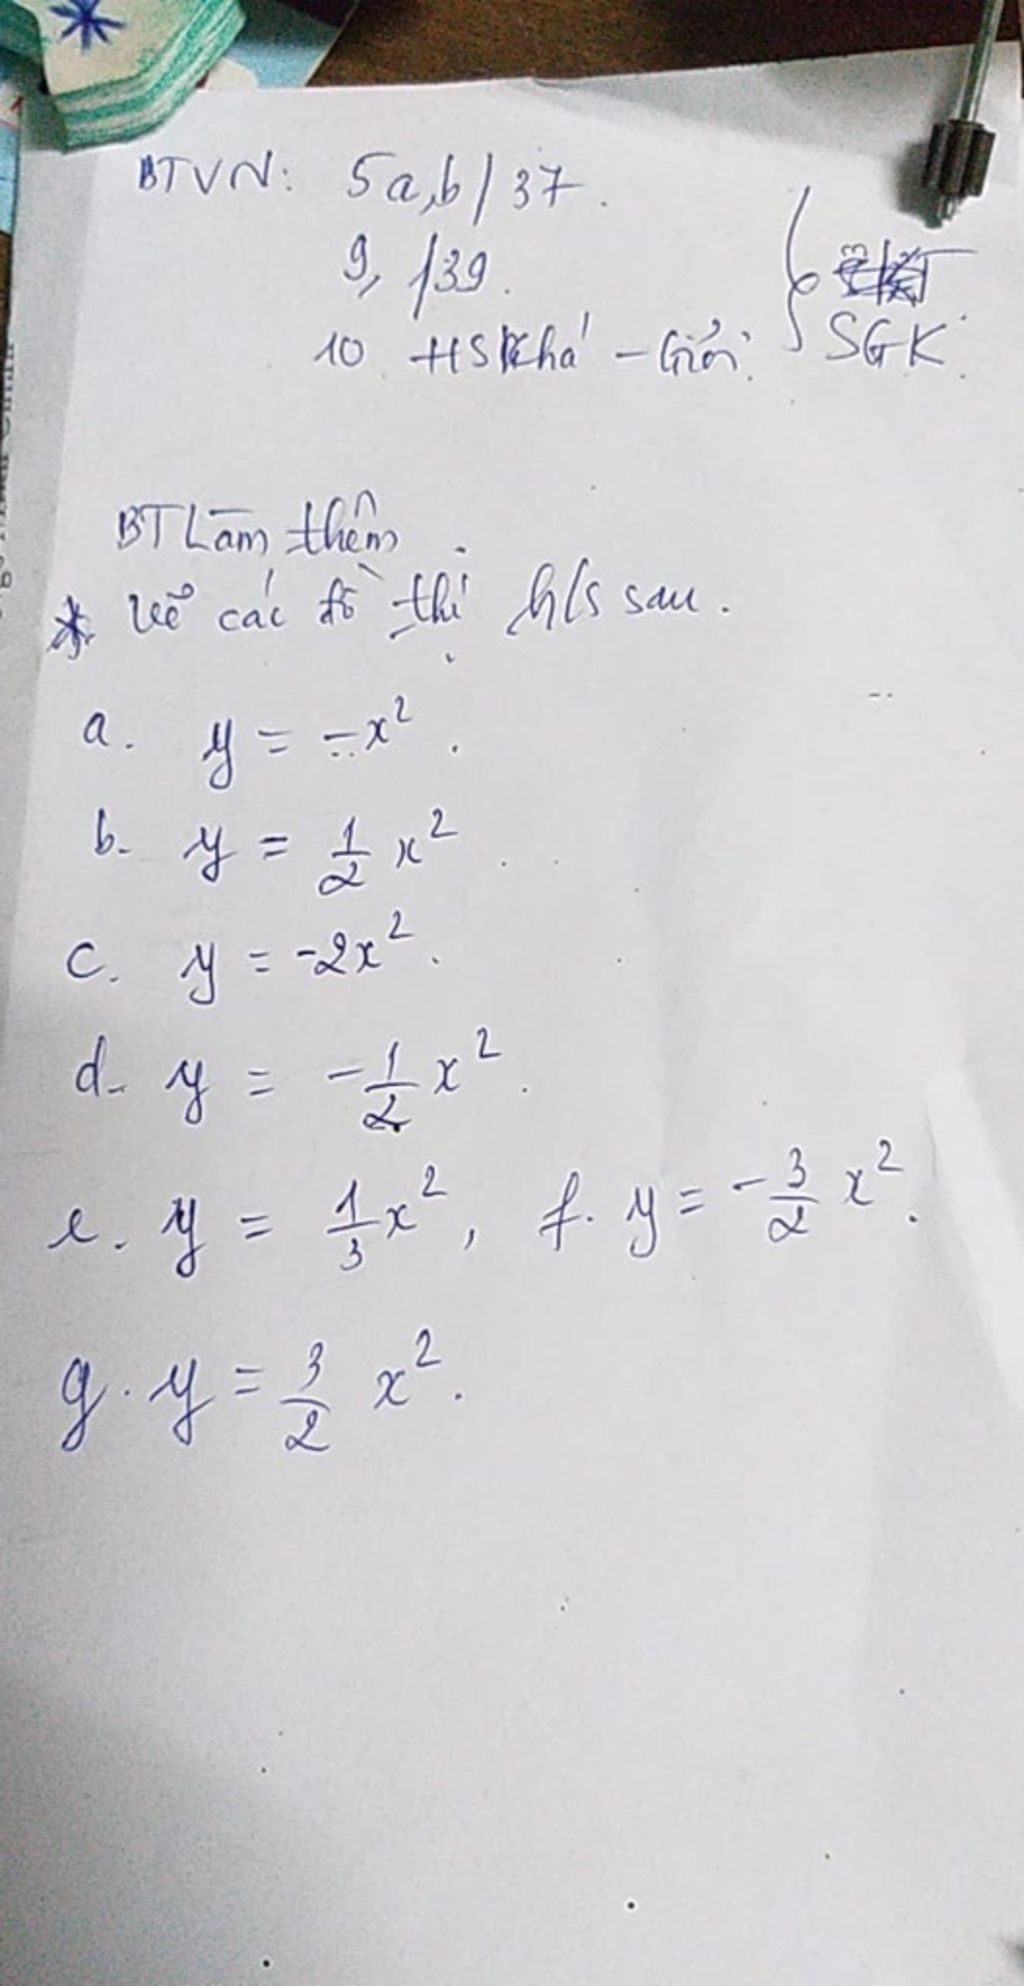 BTVN: 5a,b/37.
9, /39.
10 HS Khá - Giỏi. SGK
BT Làm thêm
* Vẽ các đồ thị h/s sau.
a. y = -x²
b. y = 1/2 x²
c. y = -2x².
d. y = -1/2 x².
e. y = 1/3 x², f. y = -3/2 x².
g. y = 3/2 x².